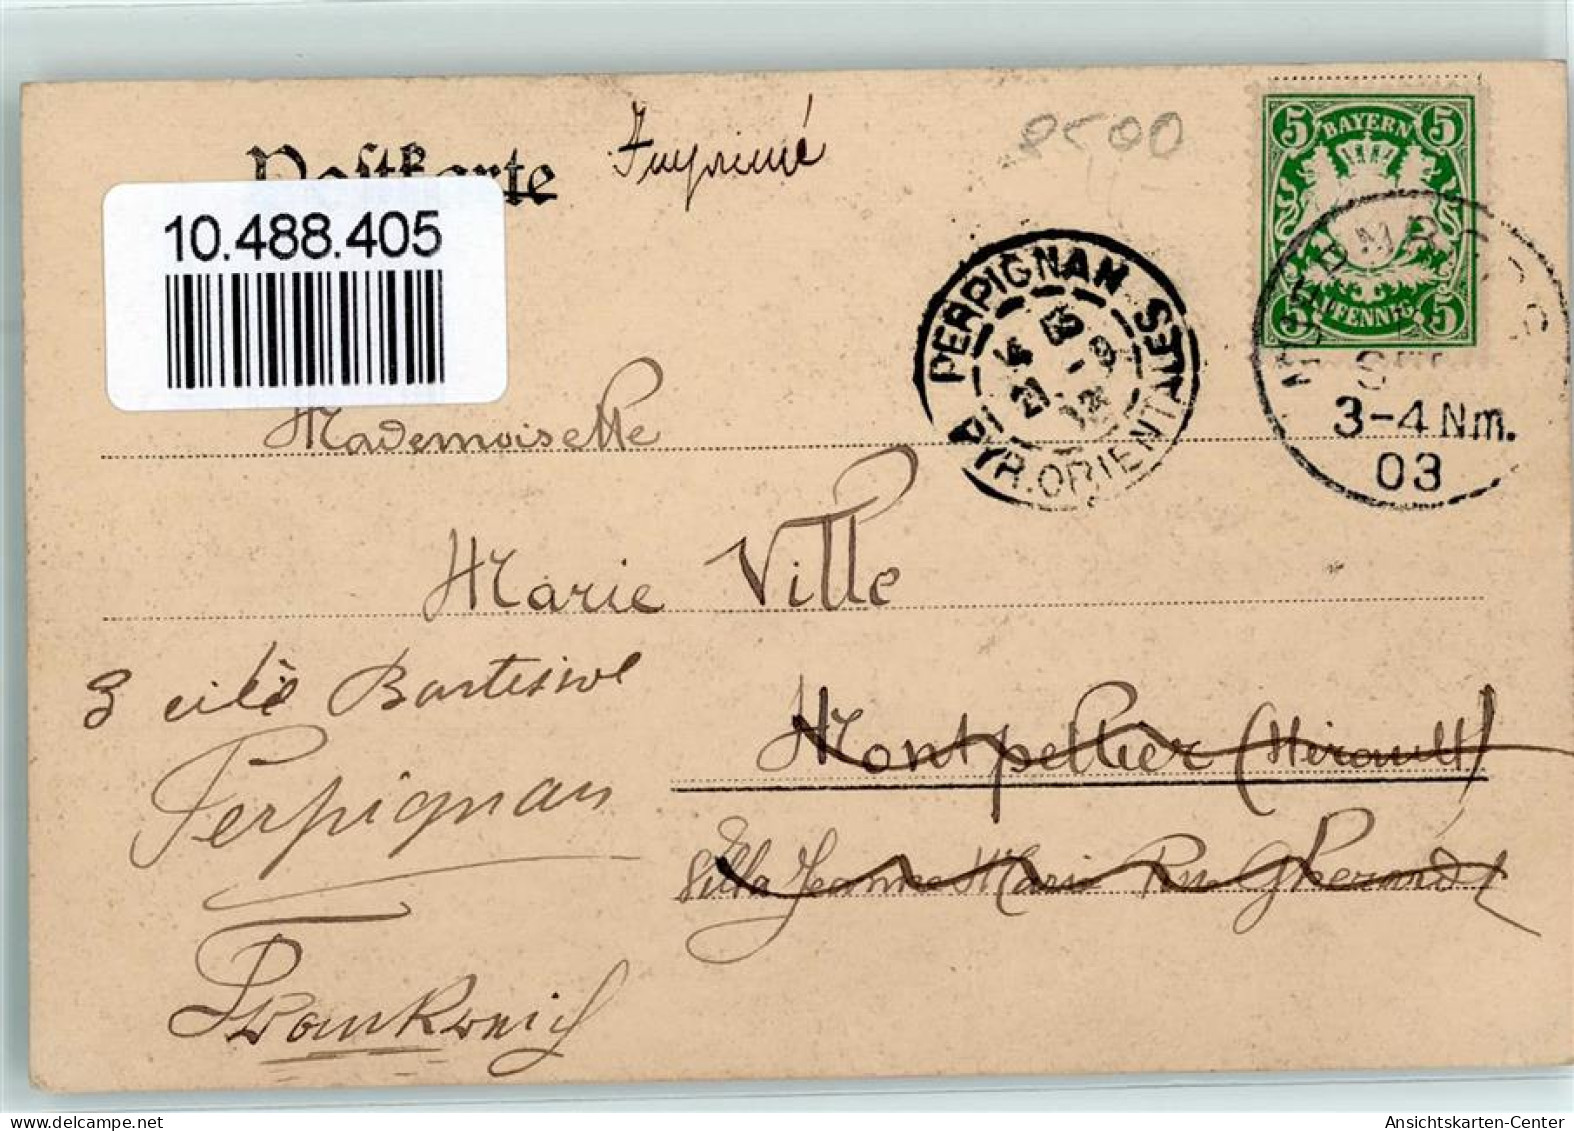 Postkarte
Imprimé
8500
10.488.405
5 BAYERN 5
5 PFENNIG 5
PERPIGNAN
PYR. ORIENTALES
21 -9
3-4 Nm.
03
Mademoiselle
Marie Ville
3 cité Bartissol
Perpignan
Montpellier (Hérault)
Villa Jeanne Marie
Frankreich
Ansichtskarten-Center